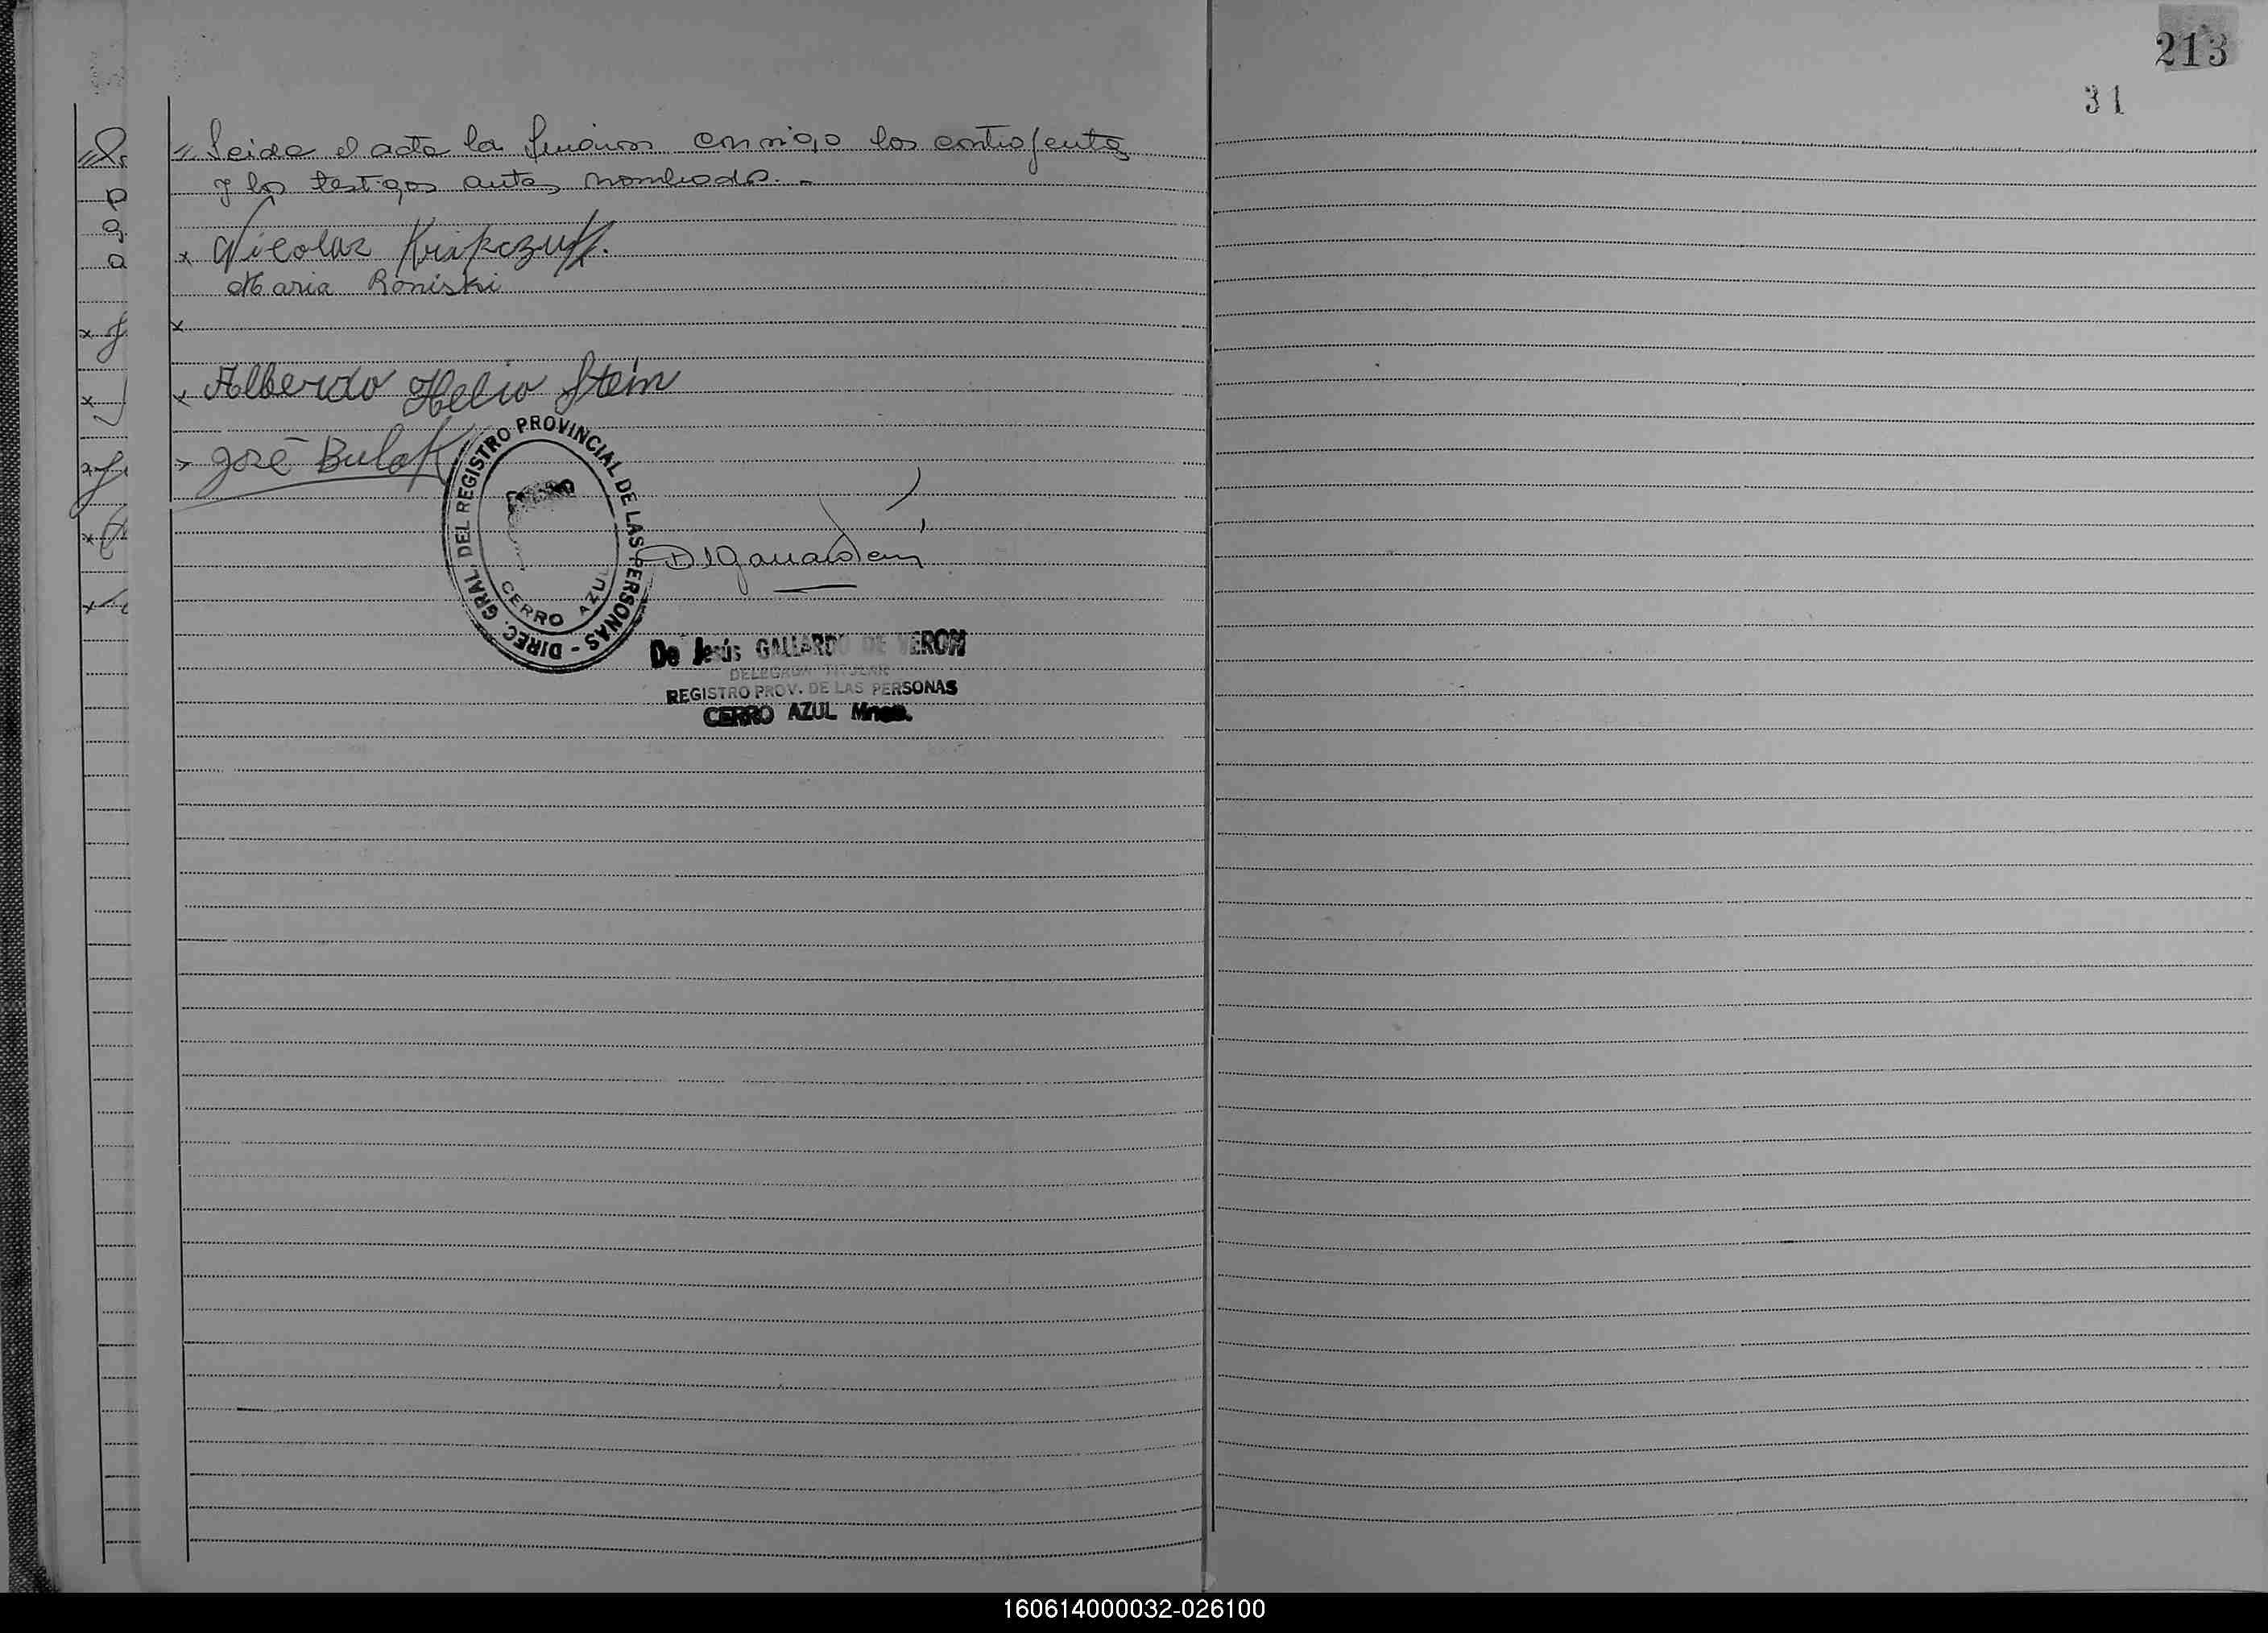 213
31
"Leida el acta la firmaron conmigo los contrayentes
y los testigos antes nombrados. -
x Nicolaz Krapczuk.
Maria Roniski
x
x Alberdo Helio Stein
x José Bulak
DIREC. GRAL. DEL REGISTRO PROVINCIAL DE LAS PERSONAS -
CERRO AZUL
De Jesús GALLARDO DE VERON
DELEGADA TITULAR
REGISTRO PROV. DE LAS PERSONAS
CERRO AZUL Mnes.
160614000032-026100